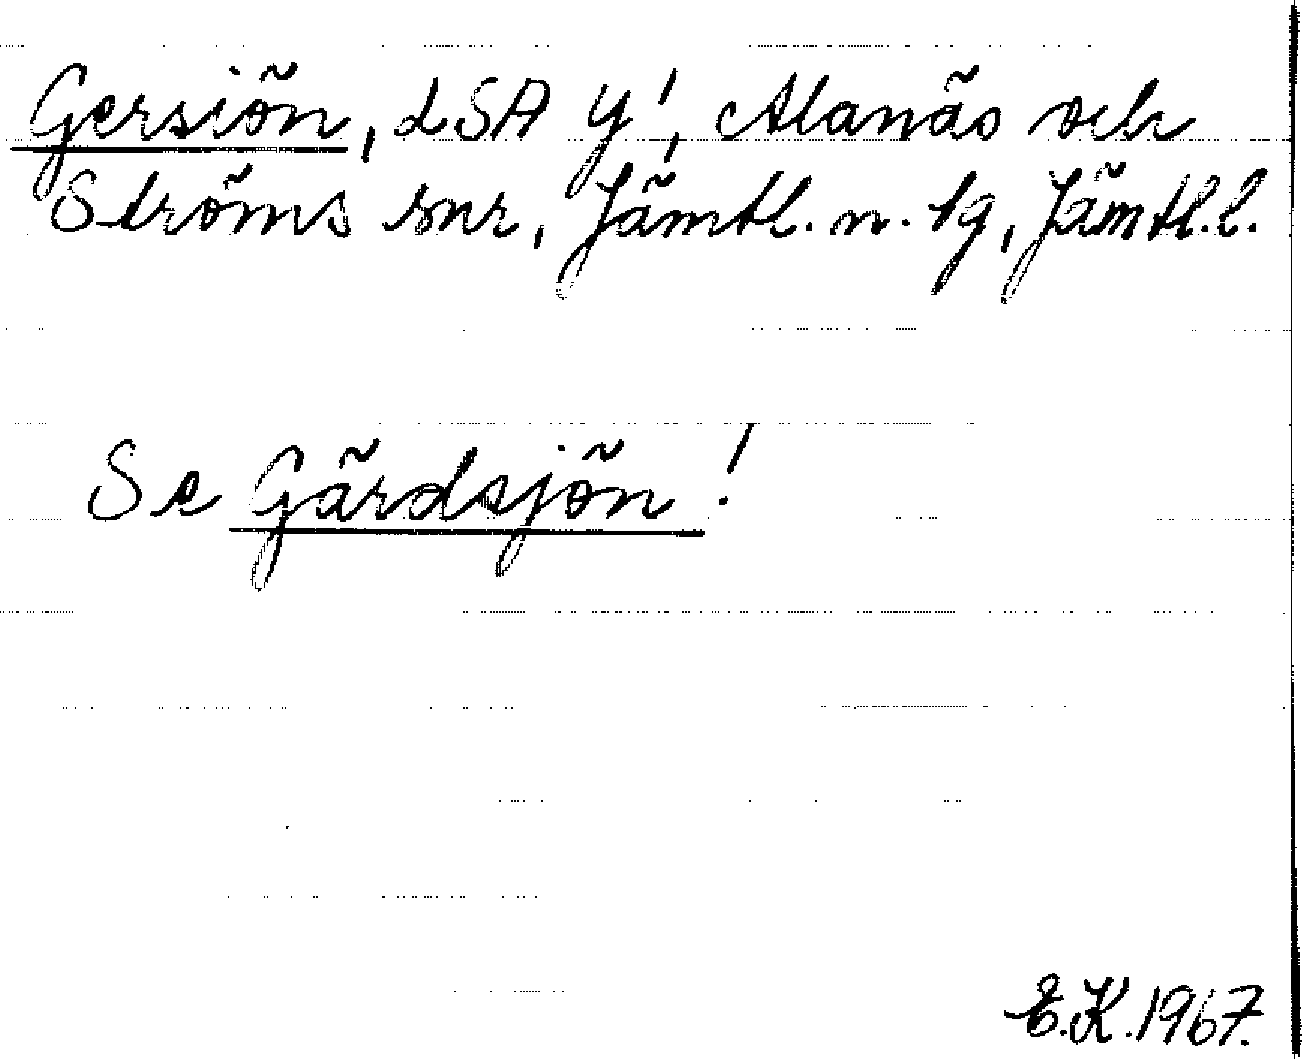 Gersiön, LSA Y¹, Alanäs och
Ströms snr, Jämtl. n. tg, Jämtl. l.
Se Gärdsjön!
E.K. 1967.